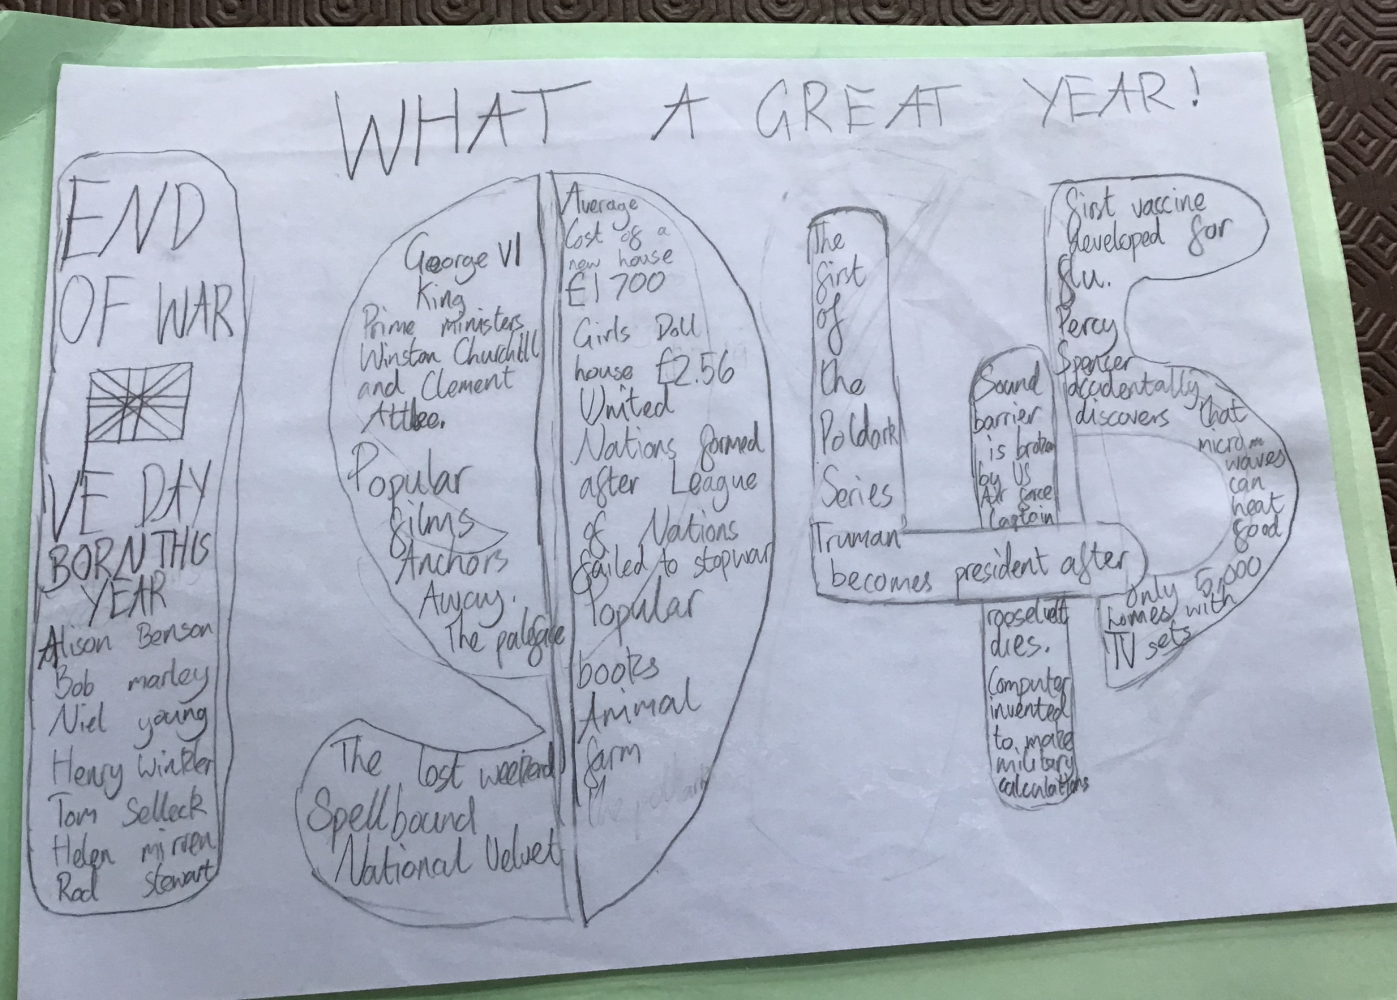 WHAT A GREAT YEAR!
END
OF WAR
VE DAY
BORN THIS
YEAR
Alison Benson
Bob marley
Niel young
Henry Winkler
Tom Selleck
Helen mirren
Rod stewart
George VI
King
Prime ministers
Winston Churchill
and Clement
Attlee.
Popular
films
Anchors
Away.
The paleface
The lost weekend
Spellbound
National Velvet
Average
Cost of a
new house
£1700
Girls Doll
house £2.56
United
Nations formed
after League
of Nations
failed to stop war
Popular
books
Animal
farm
The
first
of
the
Poldark
Series
Truman
becomes president after
Sound
barrier
is broken
by US
Air force
Captain
roosevelt
dies.
Computer
invented
to make
military
calculations
first vaccine
developed for
flu.
Percy
Spencer
accidentally
discovers that
micro
waves
can
heat
food
only 5,000
homes with
TV sets